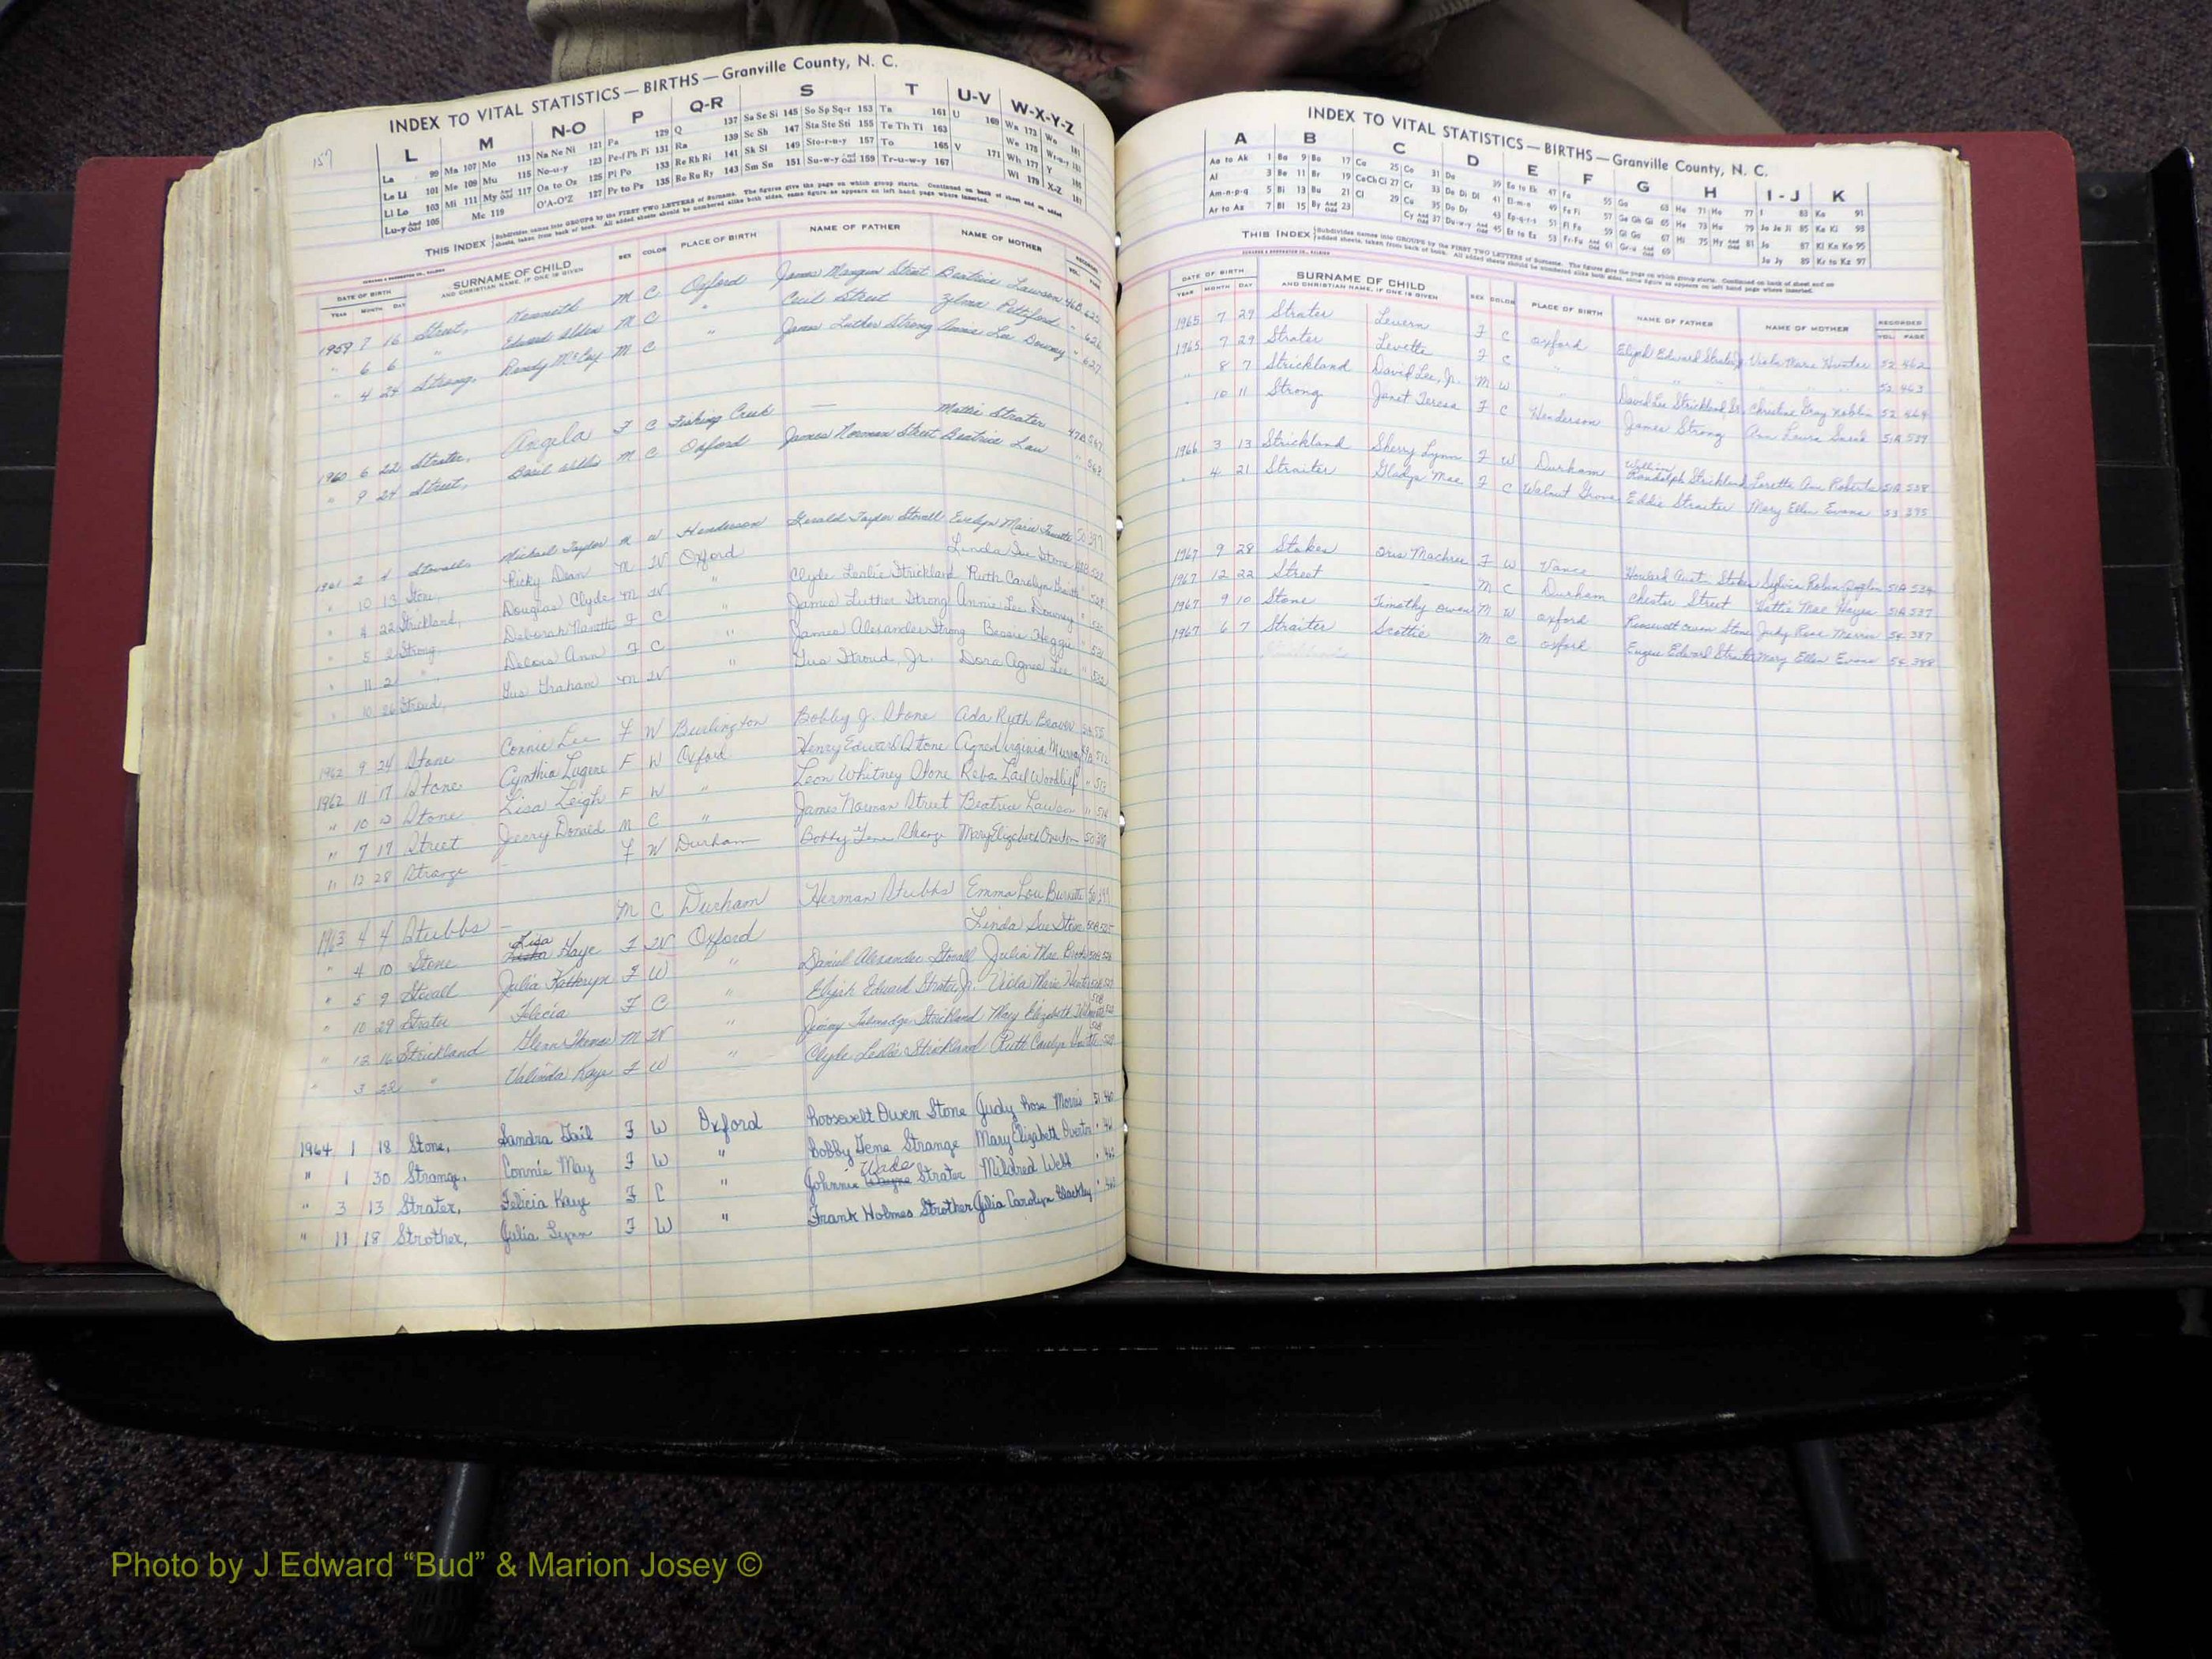 157
INDEX TO VITAL STATISTICS — BIRTHS — Granville County, N. C.
L M N-O P Q-R S T U-V W-X-Y-Z
La 99 Ma 107 Mo 113 Na Ne Ni 121 Pa 129 Q 137 Sa Se Si 145 So Sp Sq-r 153 Ta 161 U 169 Wa 173 Wo 181
Le Li 101 Me 109 Mu 115 No-u-y 123 Pe-f Ph Pi 131 Ra 139 Sc Sh 147 Sta Ste Sti 155 Te Th Ti 163 We 175
Ll Lo 103 Mi 111 My And Odd 117 Oa to Oz 125 Pl Po 133 Re Rh Ri 141 Sk Sl 149 Sto-r-u-y 157 To 165 V 171 Wh 177 Y
Lu-y And Odd 105 Mc 119 O'A-O'Z 127 Pr to Pz 135 Ro Ru Ry 143 Sm Sn 151 Su-w-y And Odd 159 Tr-u-w-y 167 Wi 179 X-Z 187
THIS INDEX Subdivides names into GROUPS by the FIRST TWO LETTERS of Surname. The figures give the page on which group starts. Continued on back of sheet and on added
sheets, taken from back of book. All added sheets should be numbered alike both sides, same figure as appears on left hand page where inserted.
DATE OF BIRTH SURNAME OF CHILD SEX COLOR PLACE OF BIRTH NAME OF FATHER NAME OF MOTHER RECORDED
YEAR MONTH DAY AND CHRISTIAN NAME, IF ONE IS GIVEN VOL. PAGE
1959 7 16 Street, Kenneth M C Oxford James Mangum Street Beatrice Lawson 46B 625
" 6 6 " Edward Alden M C " Cecil Street Zelma Pettiford " 626
" 4 24 Strong, Randy McCoy M C " James Luther Strong Annie Lee Downey " 627
1960 6 22 Strater, Angela F C Fishing Creek — Mattie Strater
" 9 24 Street, Basil Willis M C Oxford James Norman Street Beatrice Law " 568
1961 2 4 Stovall, Michael Taylor M W Henderson Gerald Taylor Stovall Evelyn Marie 50 397
" 10 13 Stone, Ricky Dean M W Oxford Linda Sue Stone
" 4 22 Strickland, Douglas Clyde M W " Clyde Leslie Strickland Ruth Carolyn
" 5 2 Strong, Deborah Nanette F C " James Luther Strong Annie Lee Downey "
" 11 2 " Delois Ann F C " James Alexander Strong Bessie Heggie " 531
" 10 26 Stroud, Gus Graham M W " Gus Stroud, Jr. Dora Agnes Lee " 532
1962 9 24 Stone Connie Lee F W Burlington Bobby J. Stone Ada Ruth Beaver
1962 11 17 Stone Cynthia Lugene F W Oxford Henry Edward Stone Agnes Virginia Murray
" 10 12 Stone Lisa Leigh F W " Leon Whitney Stone Reba Gail Woodlief " 513
" 7 17 Street Jerry Donald M C " James Norman Street Beatrice Lawson " 514
" 12 28 Strange — F W Durham Bobby Gene Strange Mary Elizabeth Overton 50 398
1963 4 4 Stubbs — M C Durham Herman Stubbs Emma Lou Burnette 50 399
" 4 10 Stone Lisa Kaye F W Oxford Linda Sue Stone
" 5 9 Stovall Julia Kathryn F W " Daniel Alexander Stovall Julia Mae
" 10 29 Strater Felicia F C " Elijah Edward Strater, Jr. Viola Marie Hunter
" 12 16 Strickland Glenn Thomas M W " Jimmy Talmadge Strickland Mary Elizabeth
" 3 22 " Valinda Kaye F W " Clyde Leslie Strickland Ruth Carolyn
1964 1 18 Stone, Sandra Gail F W Oxford Roosevelt Owen Stone Judy Rose Morris 51 460
" 1 30 Strange, Connie May F W " Bobby Gene Strange Mary Elizabeth Overton " 461
" 3 13 Strater, Felicia Kaye F C " Johnnie Wade Strater Mildred Webb "
" 11 18 Strother, Julia Lynn F W " Frank Holmes Strother Julia Carolyn Blackley "
INDEX TO VITAL STATISTICS — BIRTHS — Granville County, N. C.
A B C D E F G H I - J K
Aa to Ak 1 Ba 9 Bo 17 Ca 25 Co 31 Da 39 Ea to Ek 47 Fa 55 Ga 63 Ha 71 Ho 77 I 83 Ka 91
Al 3 Be 11 Br 19 Ce Ch Ci 27 Cr 33 De Di Dl 41 El-m-n 49 Fe Fi 57 Ge Gh Gi 65 He 73 Hu 79 Ja Je Ji 85 Ke Ki 93
Am-n-p-q 5 Bi 13 Bu 21 Cl 29 Cu 35 Do Dr 43 Ep-q-r-s 51 Fl Fo 59 Gl Go 67 Hi 75 Hy And Odd 81 Jo 87 Kl Kn Ko 95
Ar to Az 7 Bl 15 By And Odd 23 Cy And Odd 37 Du-w-y And Odd 45 Et to Ez 53 Fr-Fu And Odd 61 Gr-u And Odd 69 Ju Jy 89 Kr to Kz 97
THIS INDEX Subdivides names into GROUPS by the FIRST TWO LETTERS of Surname. The figures give the page on which group starts. Continued on back of sheet and on
added sheets, taken from back of book. All added sheets should be numbered alike both sides, same figure as appears on left hand page where inserted.
DATE OF BIRTH SURNAME OF CHILD SEX COLOR PLACE OF BIRTH NAME OF FATHER NAME OF MOTHER RECORDED
YEAR MONTH DAY AND CHRISTIAN NAME, IF ONE IS GIVEN VOL. PAGE
1965 7 29 Strater Levern F C Oxford Elijah Edward Strater, Jr. Viola Marie Hunter 52 462
1965 7 29 Strater Levette F C " " " " 52 463
" 8 7 Strickland David Lee, Jr. M W " David Lee Strickland, Sr. Christine Gray Noblin 52 464
" 10 11 Strong Janet Teresa F C Henderson James Strong Ann Laura Sneed 51A 539
1966 3 13 Strickland Sherry Lynn F W Durham William Randolph Strickland Loretta Ann Roberts 51A 538
" 4 21 Straiter Gladys Mae F C Walnut Grove Eddie Straiter Mary Ellen Evans 53 395
1967 9 28 Stokes Oris Machree F W Vance Howard Austin Stokes Sylvia Robin 51A 534
1967 12 22 Street — M C Durham Chester Street Hattie Mae Hayes 51A 537
1967 9 10 Stone Timothy Owen M W Oxford Roosevelt Owen Stone Judy Rose Morris 54 387
1967 6 7 Straiter Scottie M C Oxford Eugene Edward Straiter Mary Ellen Evans 54 388
Photo by J Edward “Bud” & Marion Josey ©